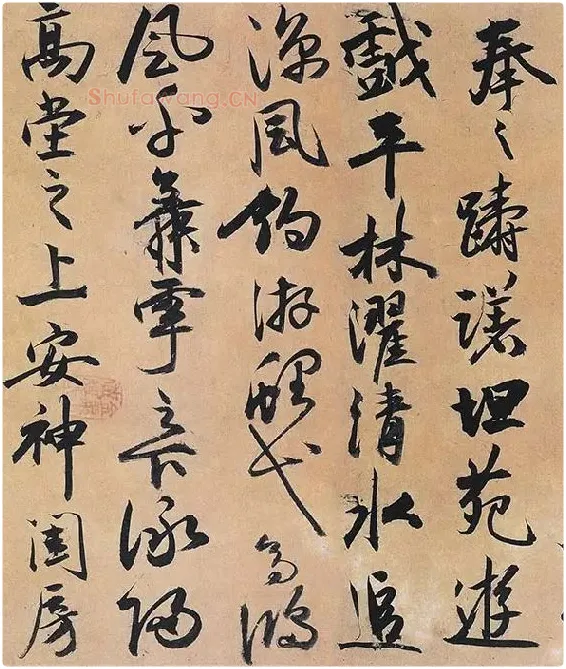 奉之躊躇坦苑遊
戲平林濯清水追
涼風釣游鯉弋高鴻
風乎舞雩之下詠歸
高堂之上安神閨房
Shufawang.CN